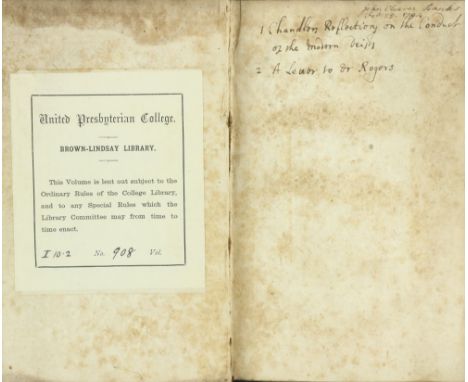 United Presbyterian College.
BROWN-LINDSAY LIBRARY.
This Volume is lent out subject to the
Ordinary Rules of the College Library,
and to any Special Rules which the
Library Committee may from time to
time enact.
I 10·2 No. 908 Vol.
1 Chandlers Reflections on the Conduct
of the modern Deists
2 A Letter to Dr Rogers